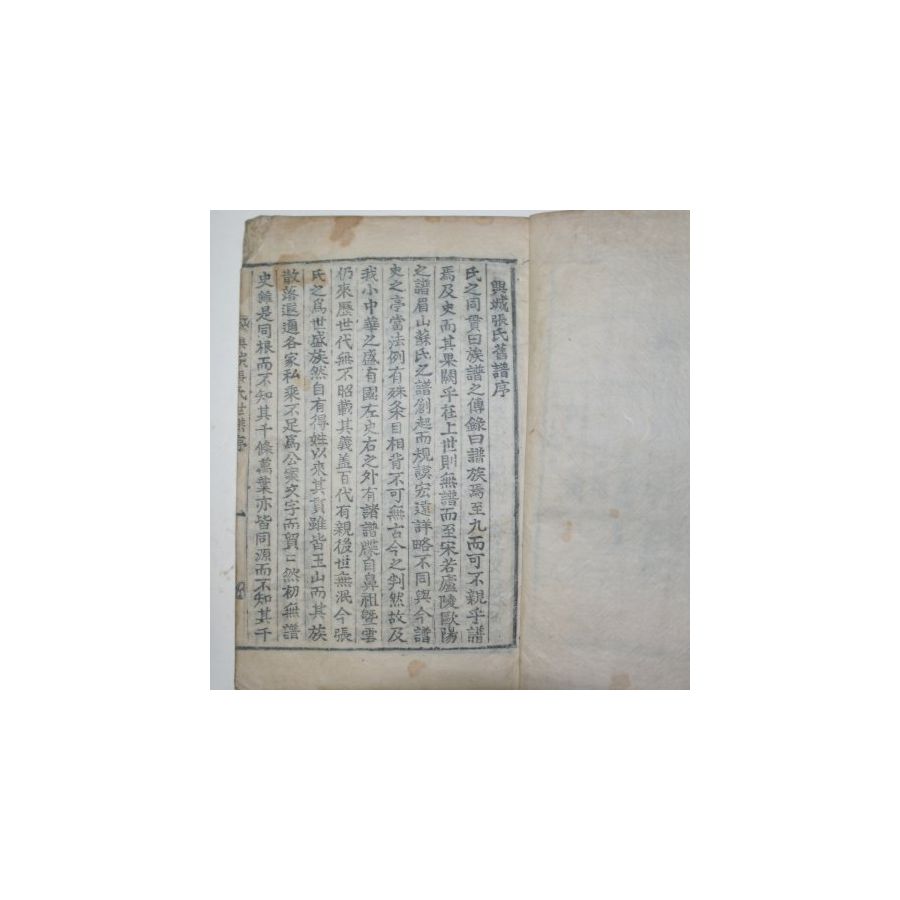 興城張氏舊譜序
氏之同貫曰族譜之傳錄曰譜族焉至九而可不親乎譜
焉及史而其果關乎在上世則無譜而至宋若廬陵歐陽
之譜眉山蘇氏之譜創起而規謨宏遠詳略不同與今譜
史之亭當法例有殊条目相背不可無古今之判然故及
我小中華之盛有國左史右之外有諸譜牒自鼻祖曁雲
仍來歷世代無不昭載其義盖百代有親後世無泯今張
氏之爲世盛族然自有得姓以來其貫雖皆玉山而其族
散落遐邇各家私乘不足爲公案文字而貿〻然初無譜
史雖是同根而不知其千條萬葉亦皆同源而不知其千
張氏世 序 一